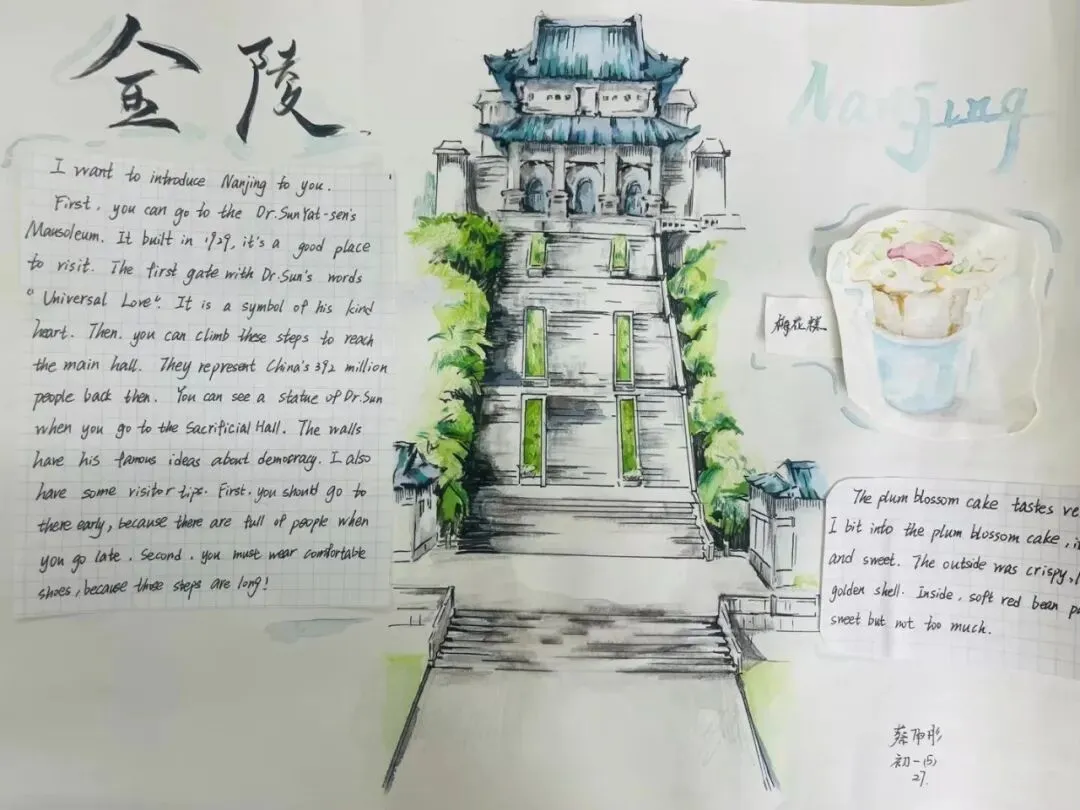 金陵
Nanjing
I want to introduce Nanjing to you.
First, you can go to the Dr.Sun Yat-sen's
Mausoleum. It built in 1929, it's a good place
to visit. The first gate with Dr.Sun's words
"Universal Love". It is a symbol of his kind
heart. Then, you can climb these steps to reach
the main hall. They represent China's 392 million
people back then. You can see a statue of Dr.Sun
when you go to the Sacrificial Hall. The walls
have his famous ideas about democracy. I also
have some visitor tips. First, you should go to
there early, because there are full of people when
you go late. Second, you must wear comfortable
shoes, because these steps are long!
梅花糕
The plum blossom cake tastes ve
I bit into the plum blossom cake, i
and sweet. The outside was crispy,
golden shell. Inside, soft red bean p
sweet but not too much.
初一(5)
27.